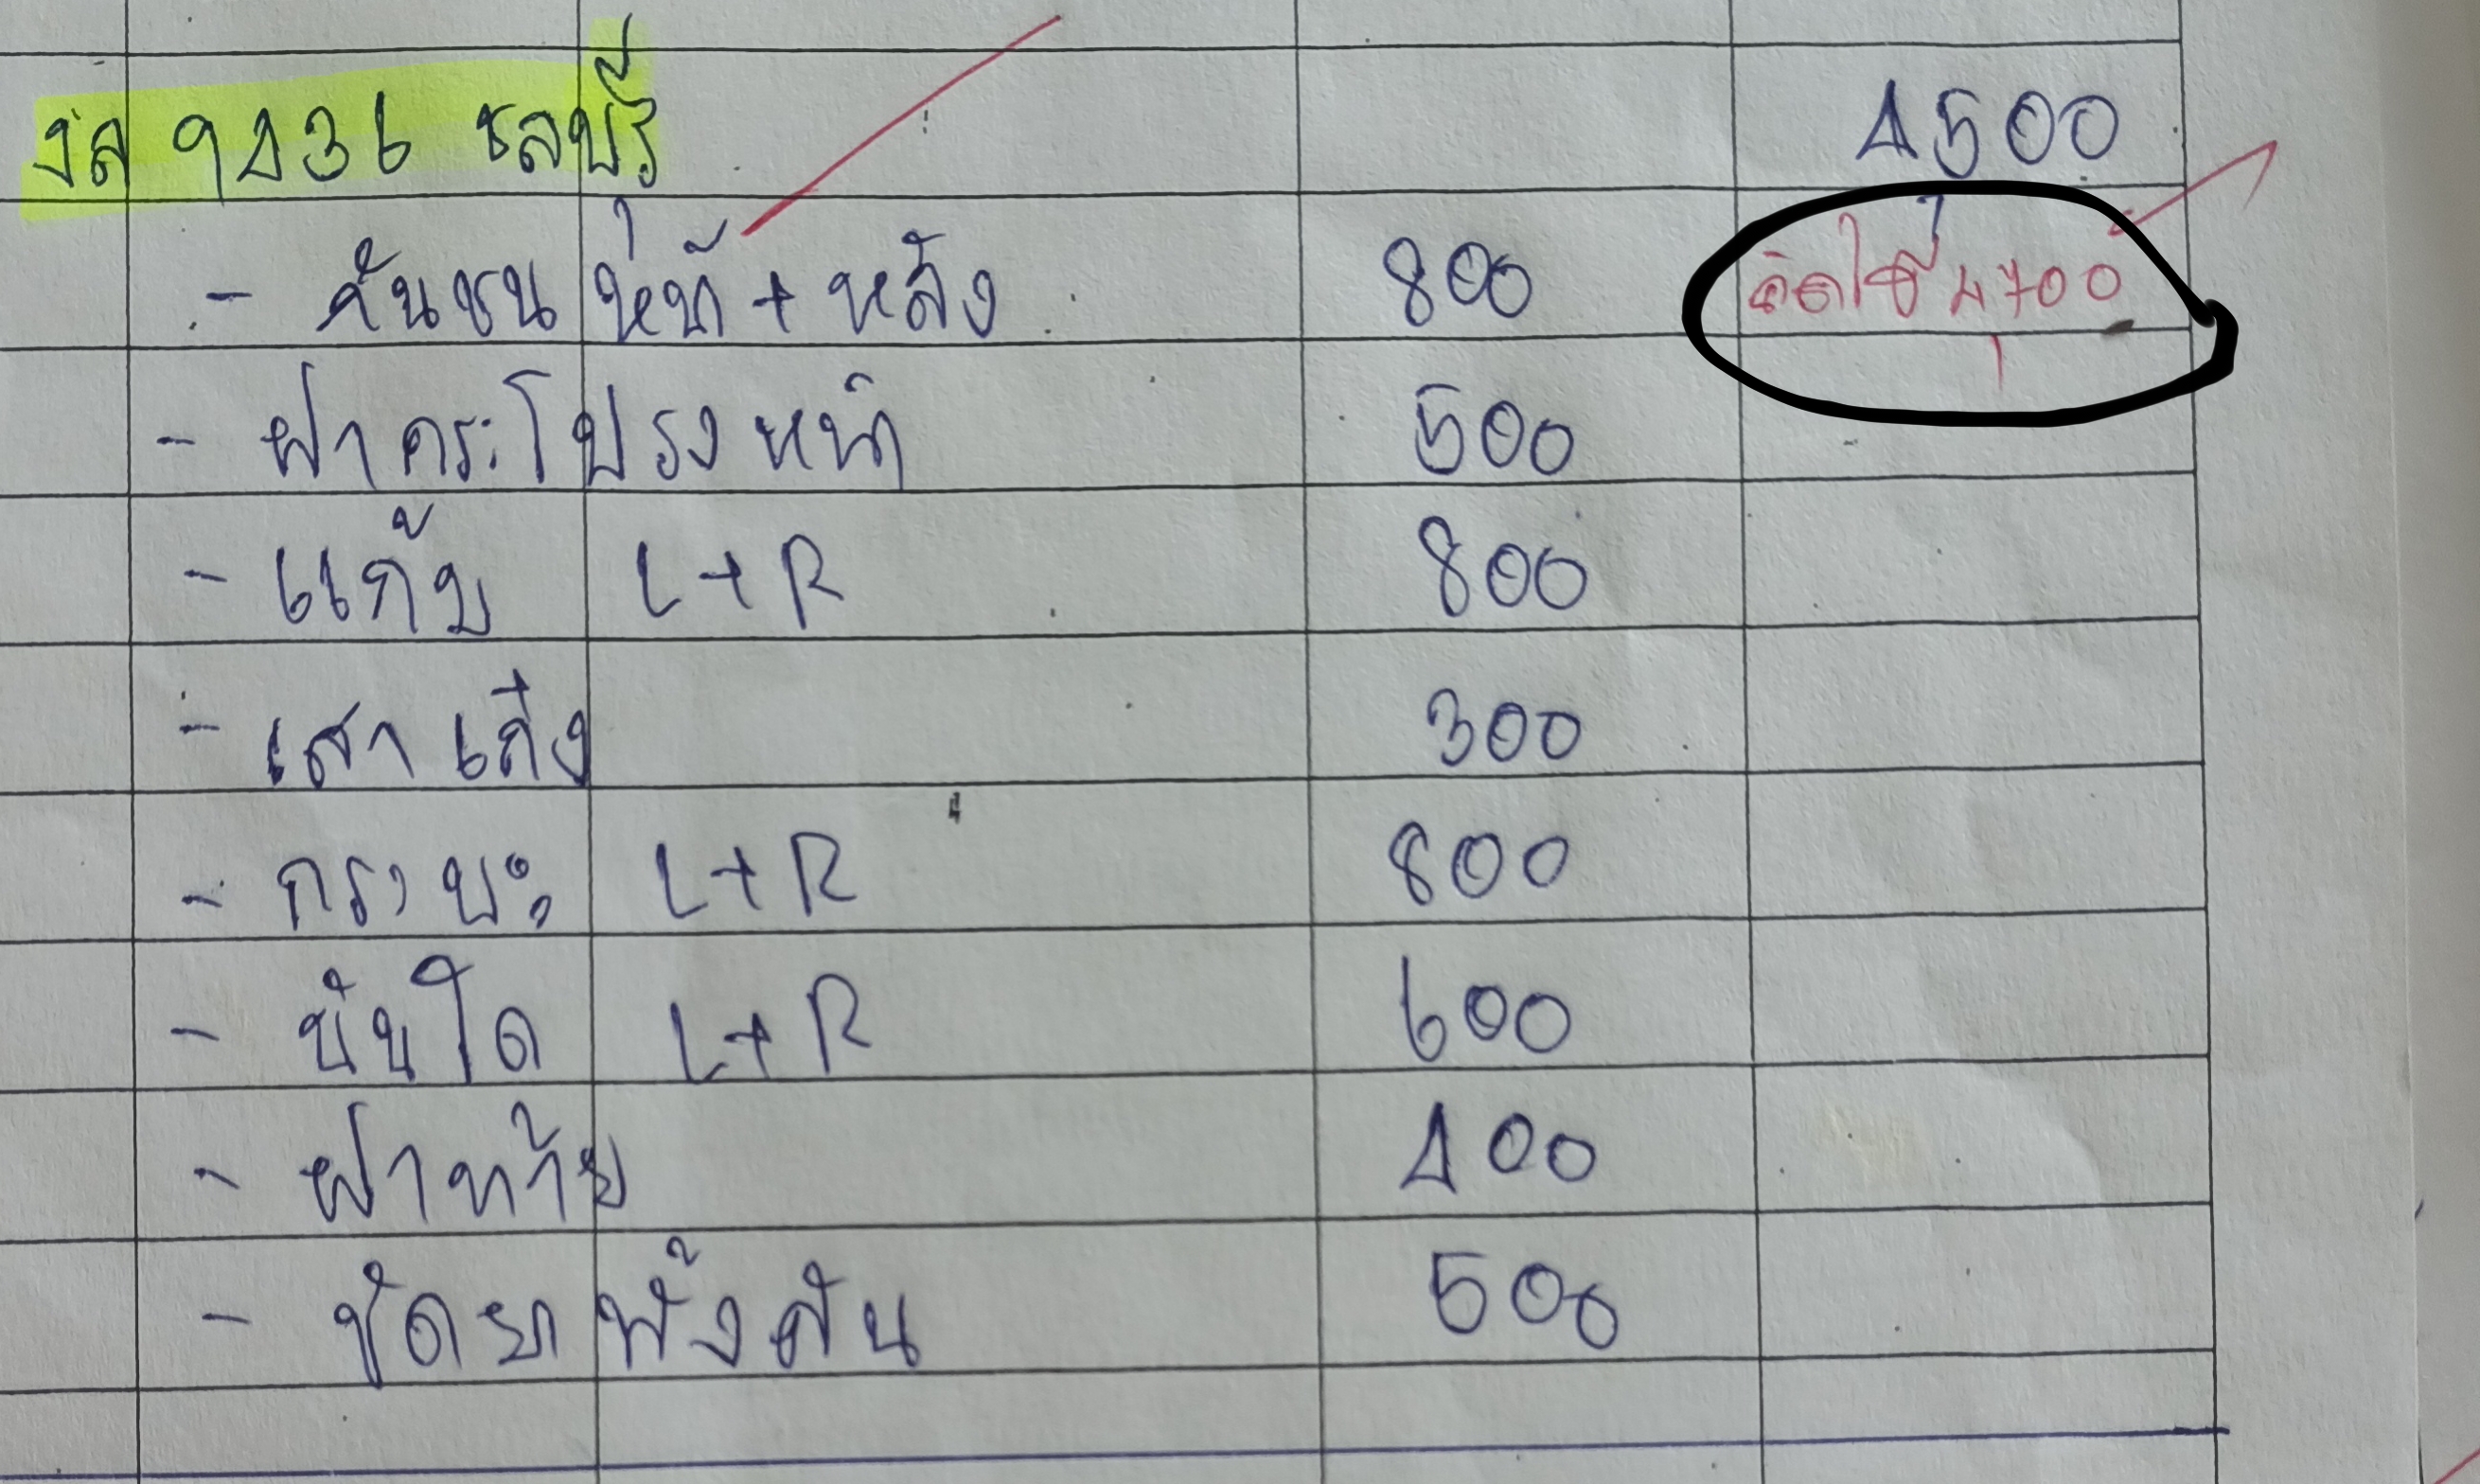 งล 9436 ชลบุรี 4500
- กันชน หน้า + หลัง 800 คิดให้ 4700
- ฝากระโปรงหน้า 500
- แก้ม L+R 800
- เสาเก๋ง 300
- กระบะ L+R 800
- บันได L+R 600
- ฝาท้าย 400
- ขัดยาทั้งคัน 500